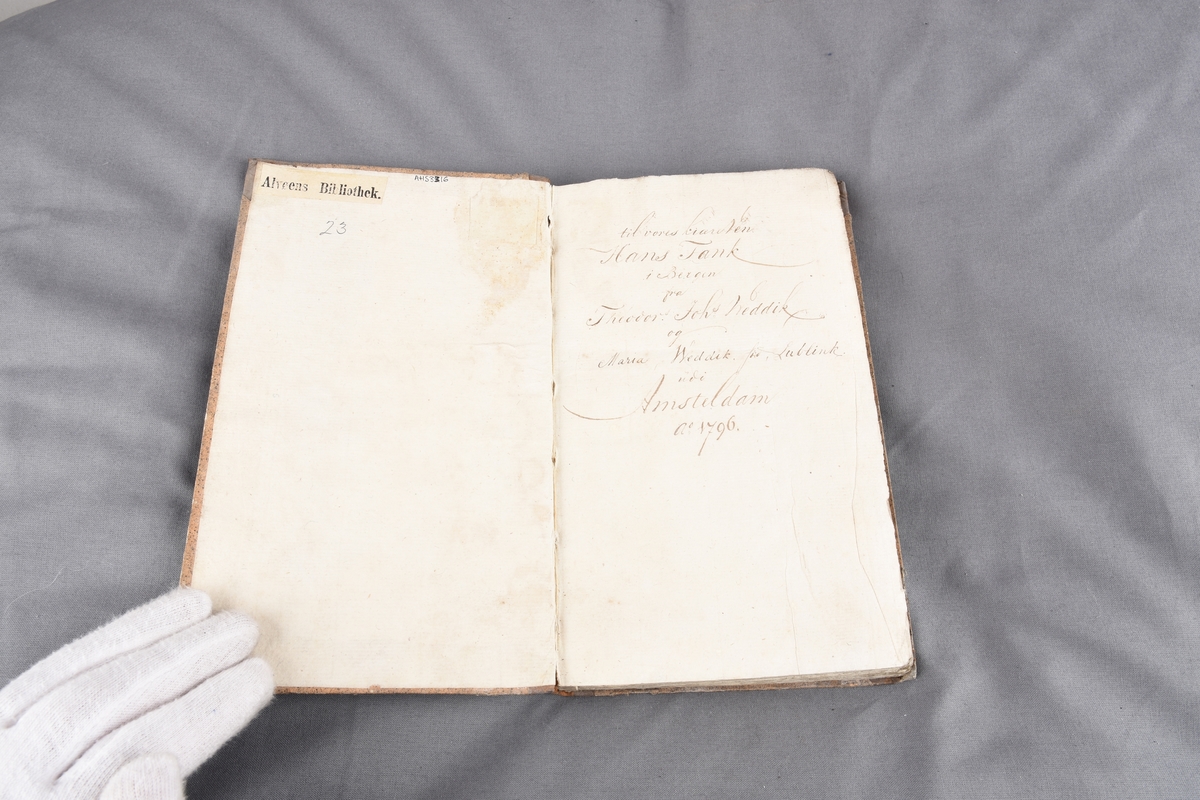 Alvøens Bibliothek.
AHS3316
23
til vores kiare Ven
Hans Tank
i Bergen
fra
Theodor: Joh: Weddik
og
Maria Weddik. fø. Lublink
udi
Amsteldam
Aº 1796.